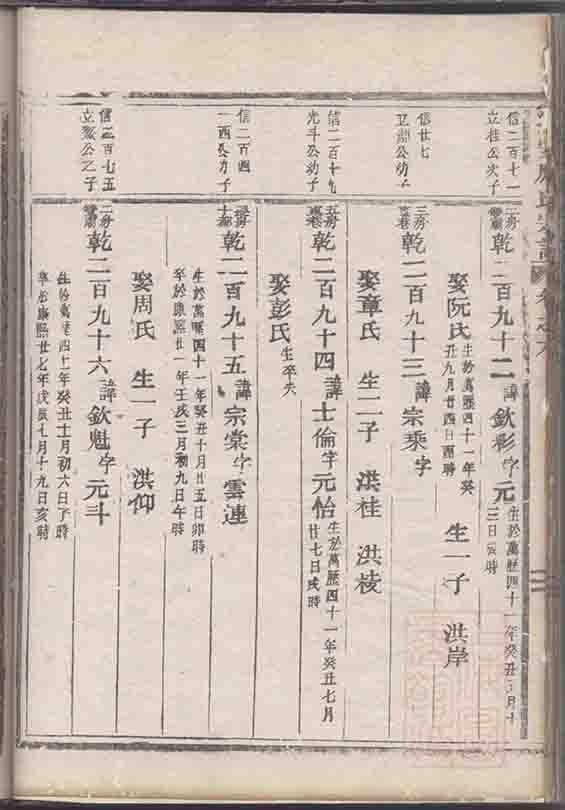 信二百十一
立桂公次子
乾二百九十二 諱 欽彩 字 元
生於萬歷四十一年癸丑 月十
三日 時
娶阮氏 生於萬歷四十一年癸
丑九月廿四日酉時
生一子 洪岸
信廿七
公幼子
三房
乾二百九十三 諱 宗乘 字
娶章氏 生二子 洪桂 洪棱
信二百十九
光斗公幼子
五房
乾二百九十四 諱 士倫 字 元怡
生於萬歷四十一年癸丑七月
廿七日戌時
娶彭氏 生卒失
信二百四
一酉公 子
乾二百九十五 諱 宗棠 字 雲連
生於萬歷四十一年癸丑十月廿五日卯時
卒於康熙廿一年壬戌三月初九日午時
娶周氏 生一子 洪仰
信二百七五
立聚公乙子
二房
乾二百九十六 諱 欽魁 字 元斗
生於萬歷四十一年癸丑十月初六日子時
卒於康熙廿七年戊辰七月十九日亥時